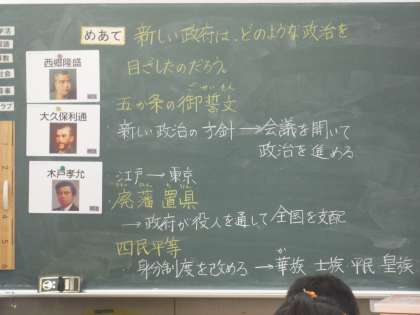 めあて 新しい政府は、どのような政治を
目ざしたのだろう。
西郷隆盛
大久保利通
木戸孝允
五か条の御誓文
ごせいもん
新しい政治の方針→会議を開いて
政治を進める
江戸→東京
はいはんちけん
廃藩置県
→政府が役人を通して全国を支配
四民平等
身分制度を改める→華族 士族・平民 皇族
か
社会
クラブ